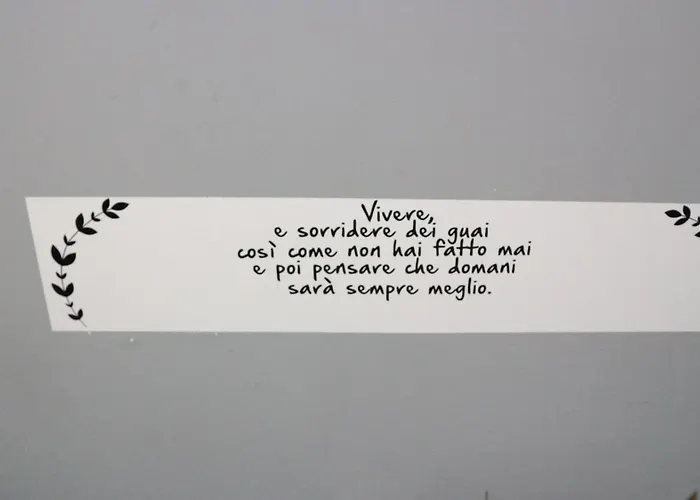 Vivere,
e sorridere dei guai
così come non hai fatto mai
e poi pensare che domani
sarà sempre meglio.